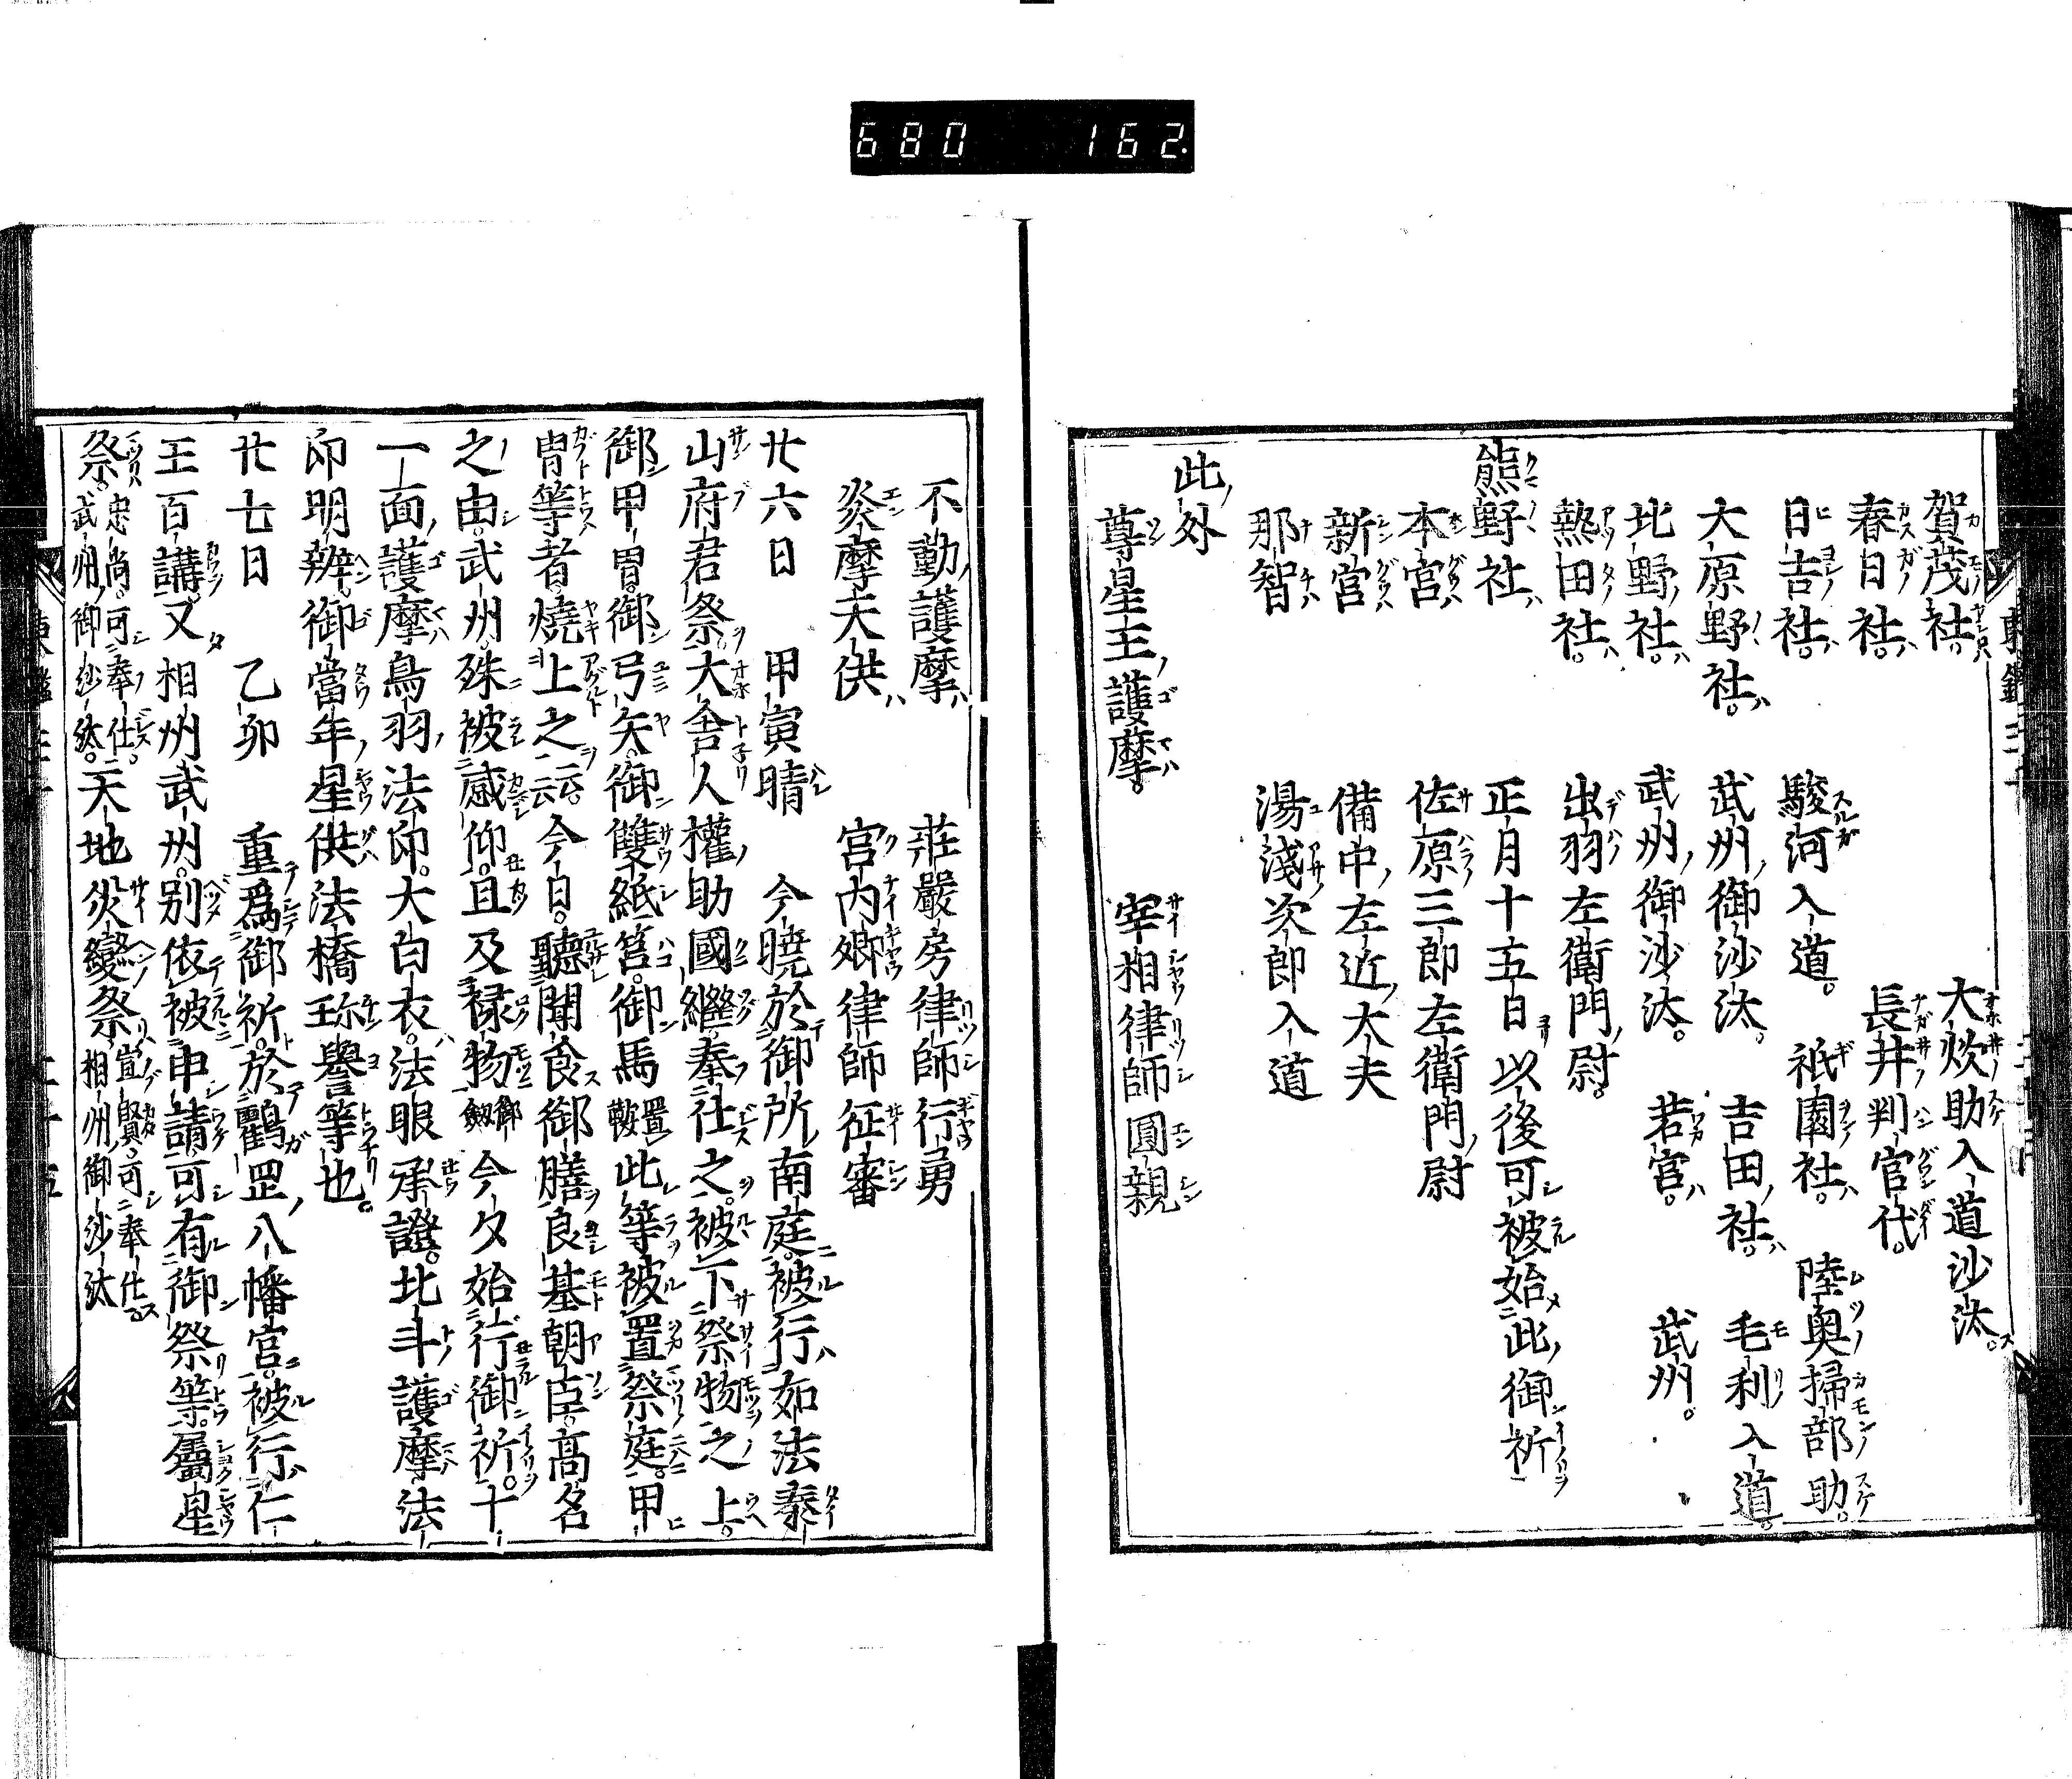 680 162
賀茂社 大炊助入道沙汰
春日社 長井判官代
日吉社 駿河入道 祇園社 陸奥掃部助
大原野社 武州御沙汰 吉田社 毛利入道
北野社 武州御沙汰 若宮 武州
熱田社 出羽左衛門尉
熊野社 正月十五日以後可被始此御祈
本宮 佐原三郎左衛門尉
新宮 備中左近大夫
那智 湯淺次郎入道
此外
尊星王護摩 宰相律師圓親
不動護摩 莊嚴房律師行勇
炎摩天供 宮内卿律師征審
廿六日 甲寅晴 今曉於御所南庭被行如法泰
山府君祭大舎人權助國繼奉仕之被下祭物之上
御甲冑御弓矢御雙紙筥御馬置鞍此等被置祭庭甲
冑等者燒上之云云今日聽聞食御膳良基朝臣高名
之由武州殊被感仰且及禄物御劔今夕始行御祈十
一面護摩鳥羽法印大白衣法眼承證北斗護摩法
印明辨御當年星供法橋珎譽等也
廿七日 乙卯 重爲御祈於鸖罡八幡宮被行仁
王百講又相州武州別依被申請可有御祭等屬星
祭忠尚可奉仕武州御沙汰天地災變祭宣賢可奉仕相州御沙汰